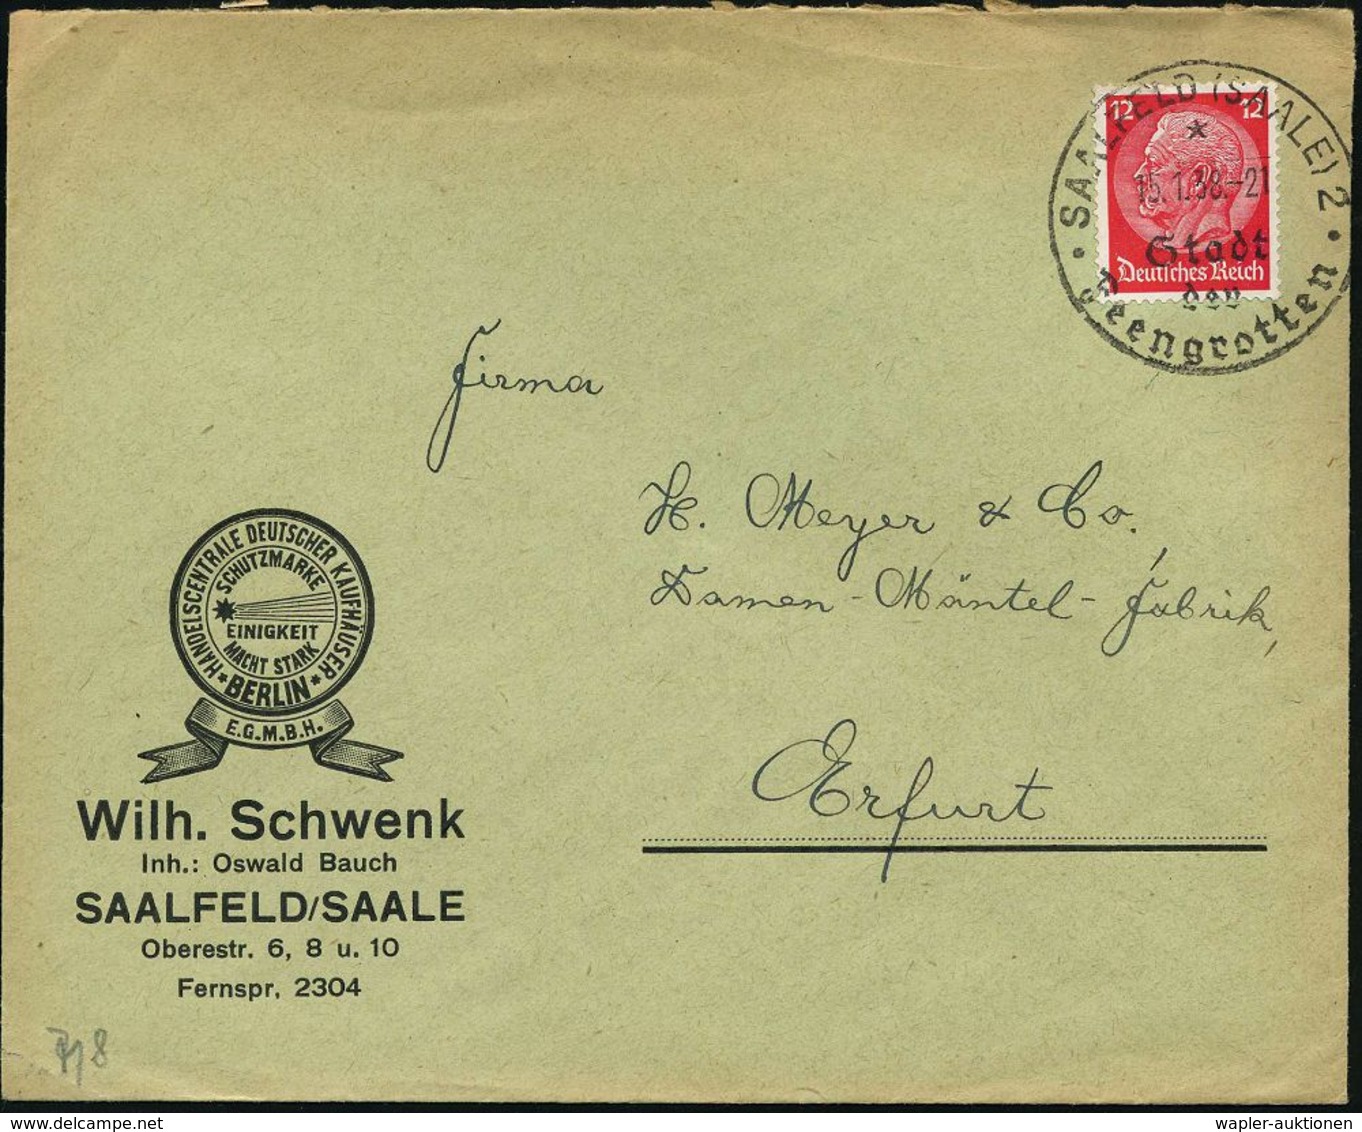 SAALFELD (SAALE) 2
12 12
15.1.38.-21
Stadt
der
Feengrotten
Deutsches Reich
Firma
H. Meyer & Co.,
Damen-Mäntel-Fabrik,
Erfurt
HANDELSCENTRALE DEUTSCHER KAUFHÄUSER
SCHUTZMARKE
EINIGKEIT
MACHT STARK
* BERLIN *
E.G.M.B.H.
Wilh. Schwenk
Inh.: Oswald Bauch
SAALFELD/SAALE
Oberestr. 6, 8 u. 10
Fernspr. 2304
wapler-auktionen